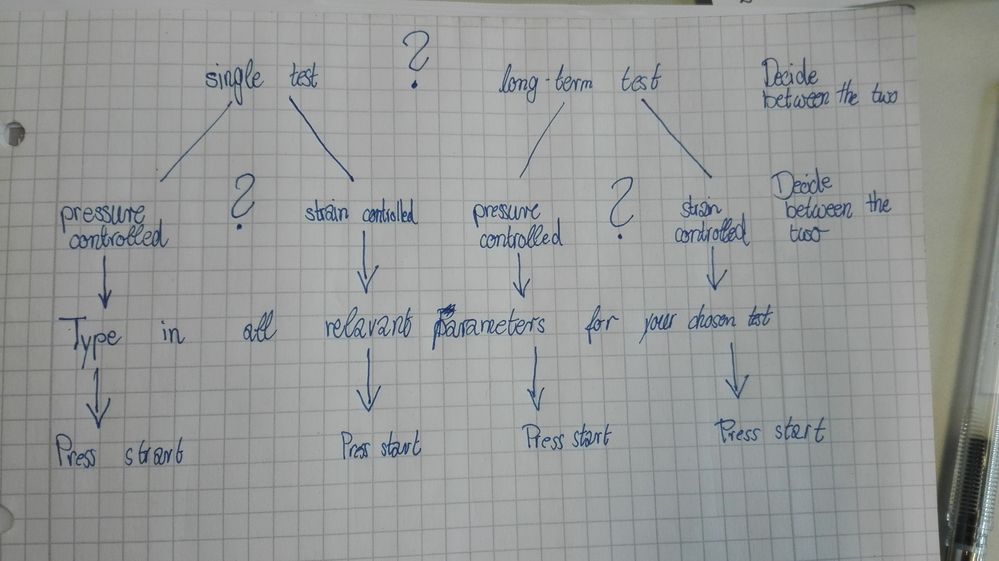 ?
single test long-term test Decide
between the two
pressure
controlled
?
strain controlled
pressure
controlled
?
strain
controlled
Decide
between the
two
Type in all relavant Parameters for your chosen test
Press strart Press start Press start Press start